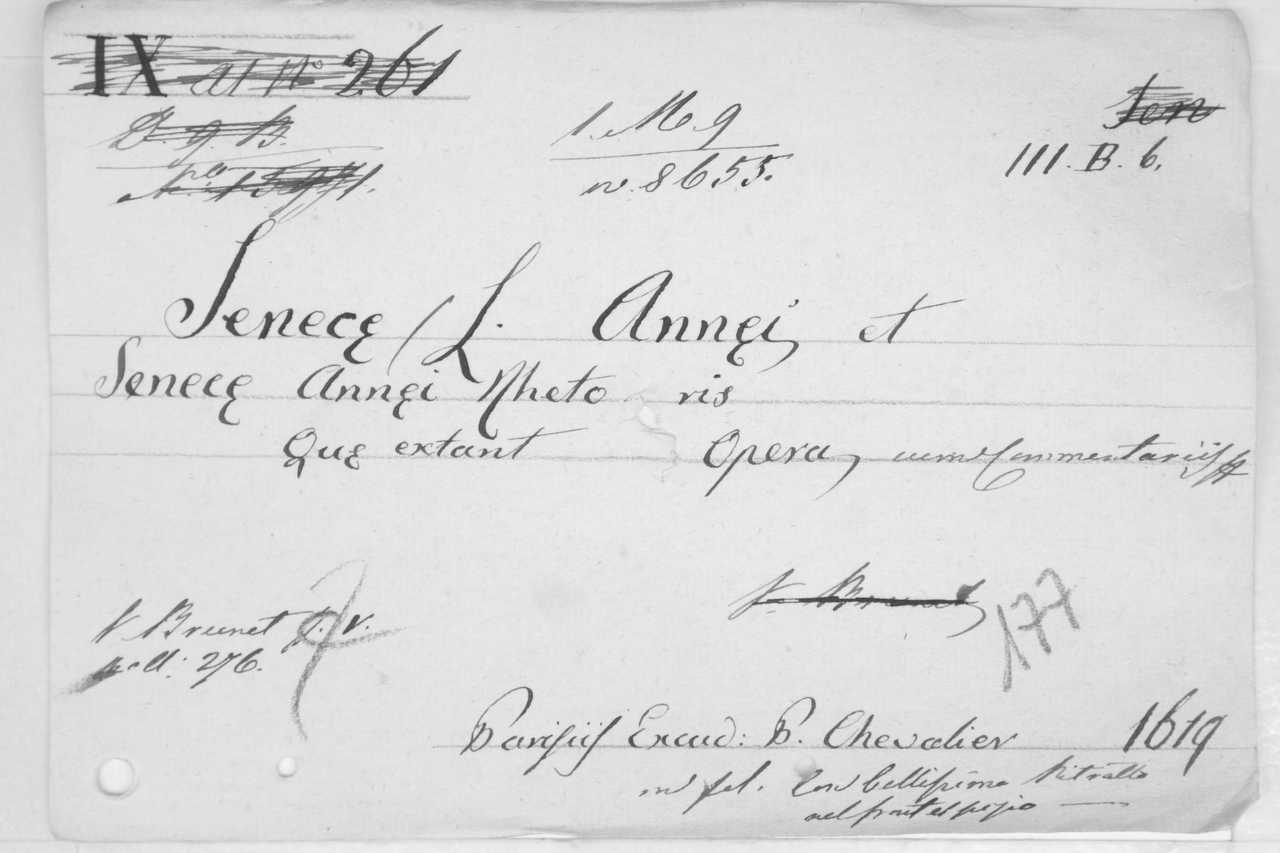 IX al No 261
D. g. B.
1. M 9
n. 8655.
Sen
III. B. 6.
Senecę / L. Annęi, et
Senecę Annęi Rheto ris
Quę extant Opera, cum Commentariis
V Brunet
V Brunet t. v.
pall: 276.
177
Parisiis Excud: P. Chevalier 1619
in fol. con bellissimo Ritratto
nel frontespizio